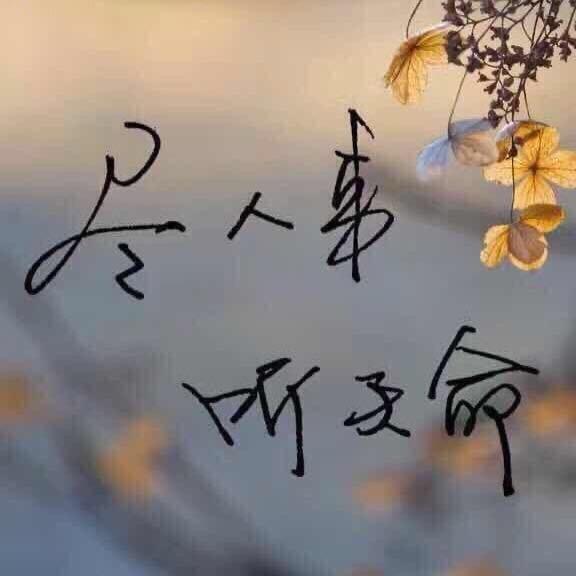 尽人事
听天命